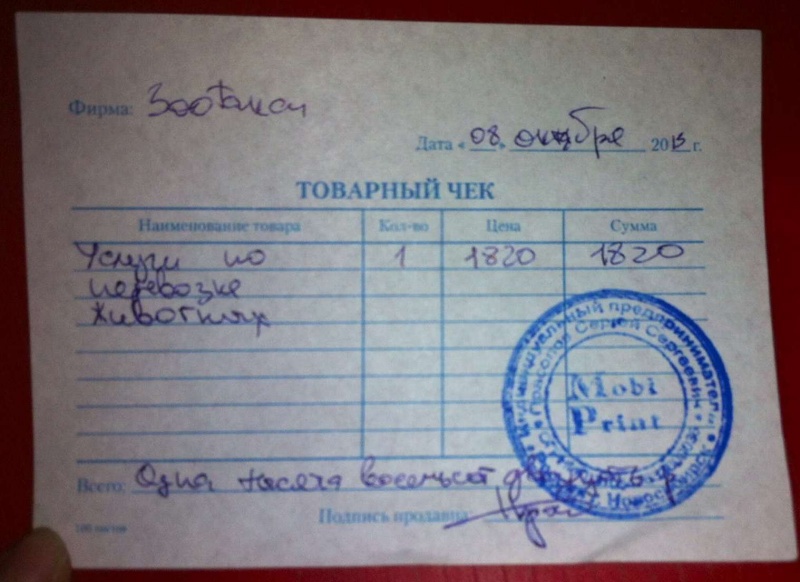 Фирма: Зоотакси
Дата «08» октября 2013 г.
ТОВАРНЫЙ ЧЕК
Наименование товара Кол-во Цена Сумма
Услуги по 1 1820 1820
перевозке
животных
Индивидуальный предприниматель
Сергей Сергеевич
Mobi
Print
Всего: Одна тысяча восемьсот двадцать р
Подпись продавца:
100 листов